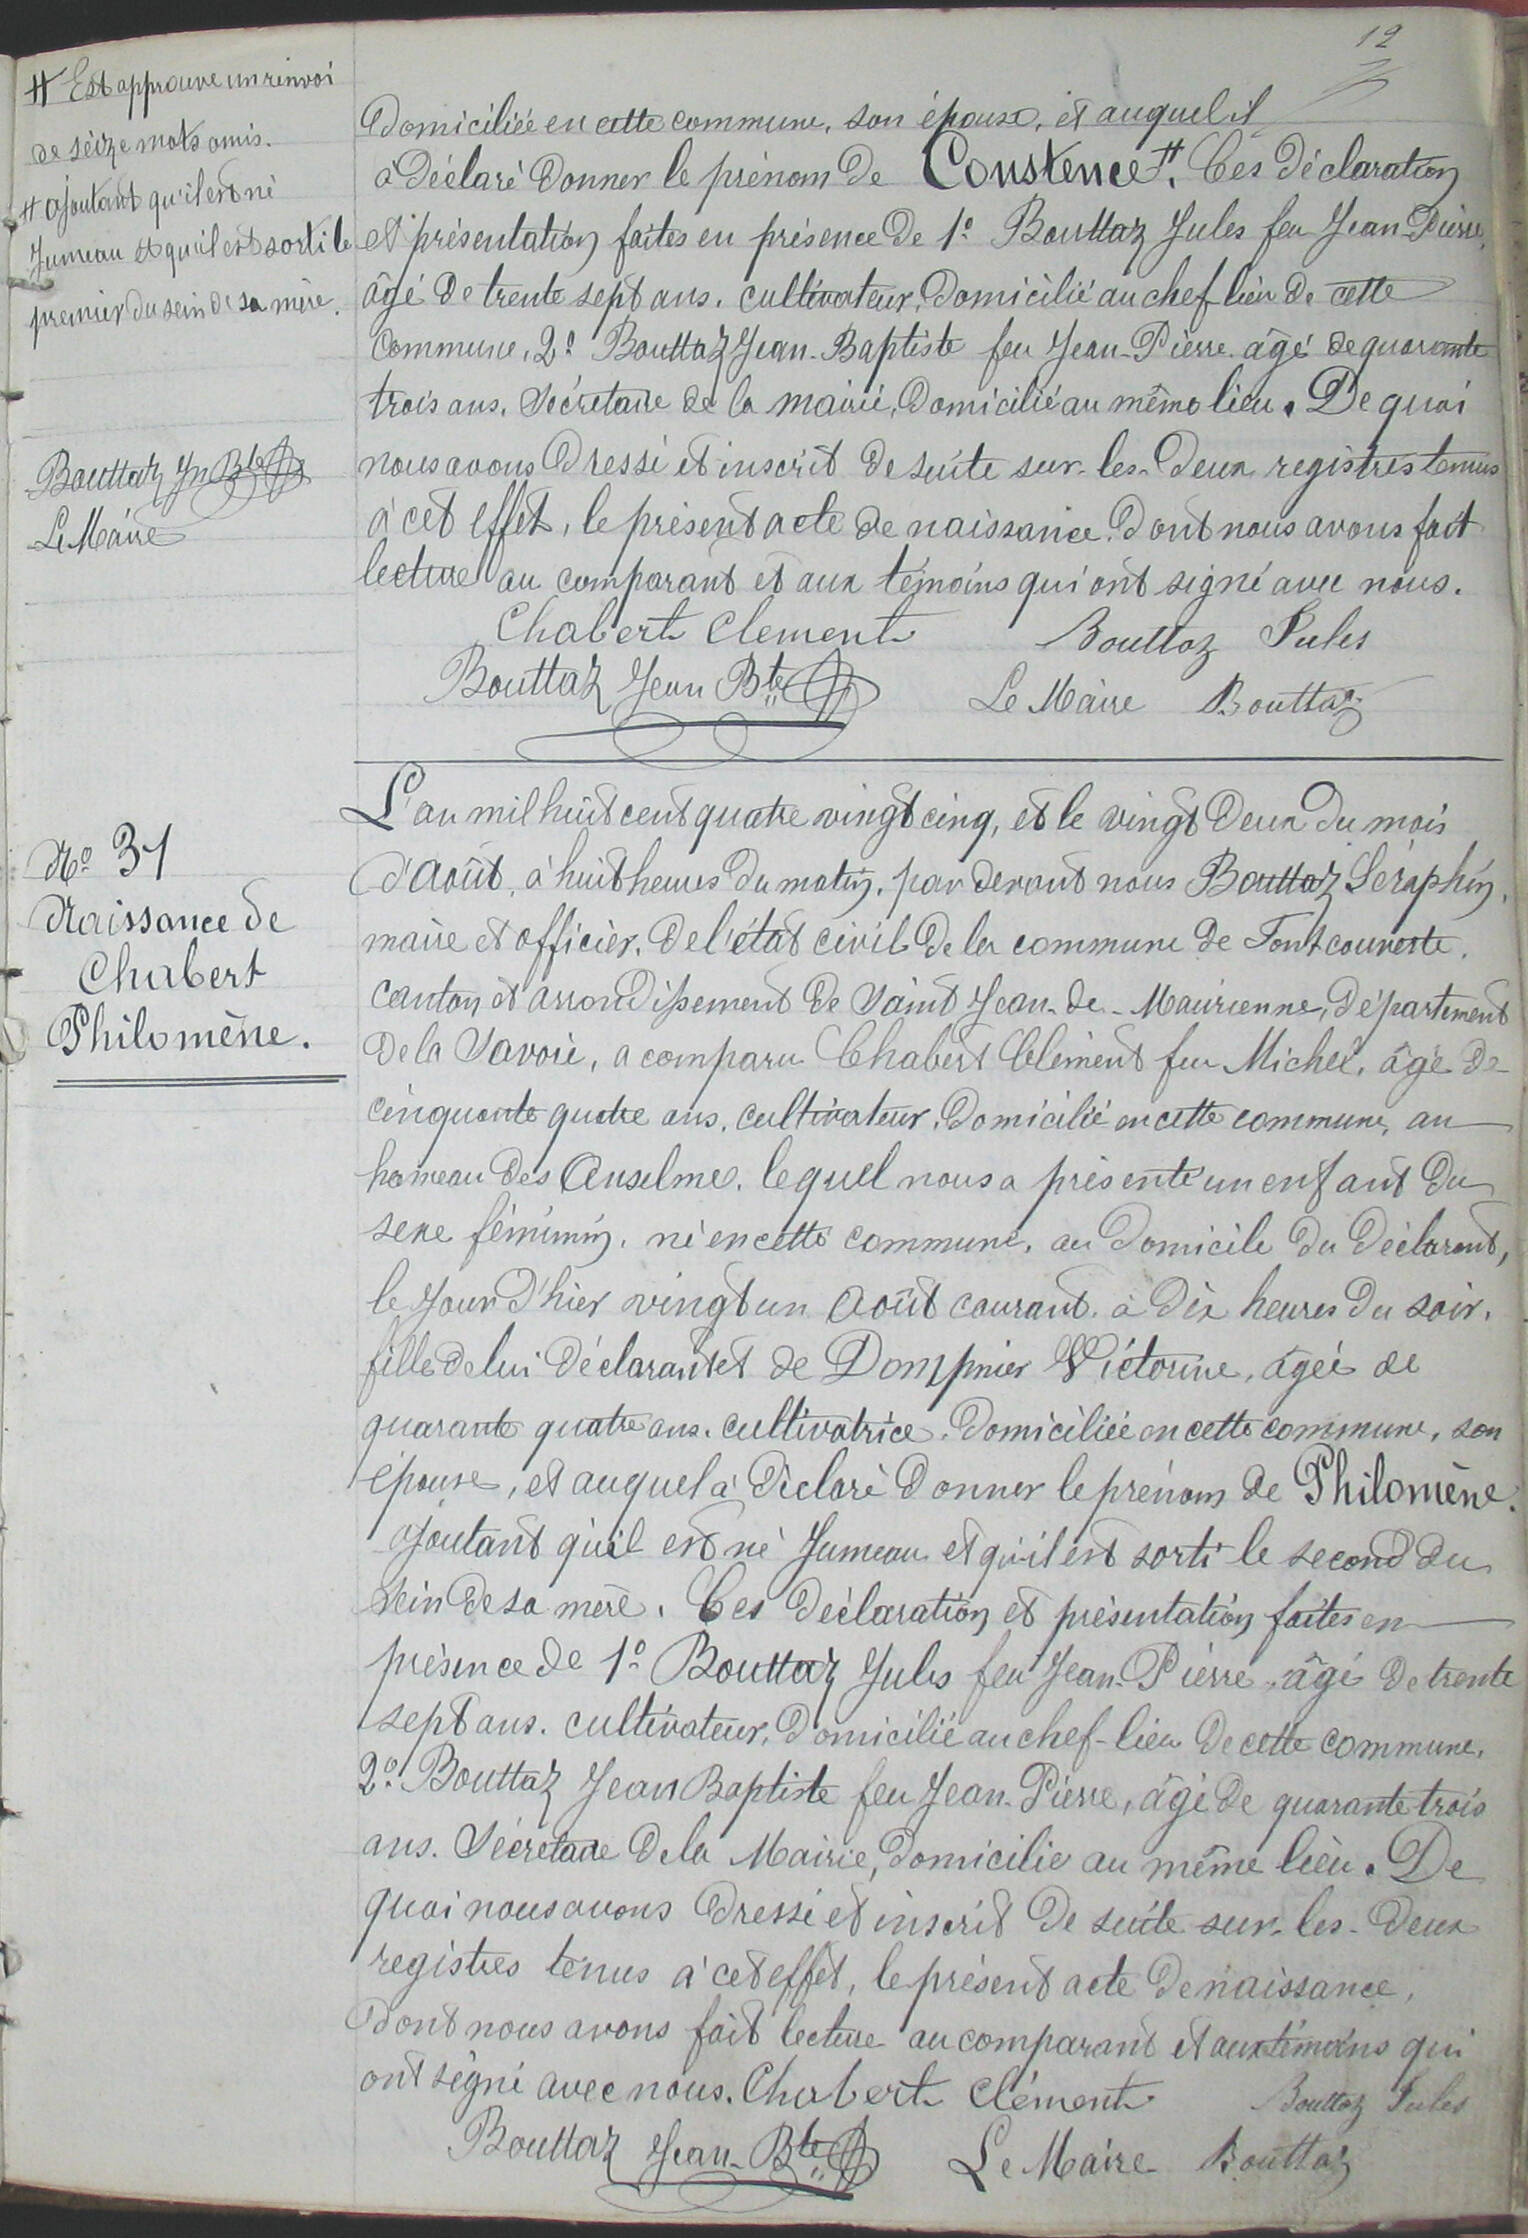 12
# Est approuvé un renvoi
de seize mots omis.
# ajoutant qu'il est né
Jumeau et qu'il est sorti le
premier du sein de sa mère.
Bouttaz Jn Bte
Le Maire
Domiciliée en cette commune, son épouse, et auquel il
à déclaré donner le prénom de Constence #. Ces déclaration
et présentation faites en présence de 1º Bouttaz Jules feu Jean Pierre,
âgé de trente sept ans, cultivateur, domicilié au chef lieu de cette
commune, 2º Bouttaz Jean-Baptiste feu Jean-Pierre âgé de quarante
trois ans, Sécretaire de la mairie, domicilié au même lieu. De quoi
nous avons dressé et inscrit de suite sur-les-deux registres tenus
à cet effet, le présent acte de naissance. dont nous avons fait
lecture au comparant et aux témoins qui ont signé avec nous.
Chabert Clement Bouttaz Jules
Bouttaz Jean Bte Le Maire Bouttaz
Nº 31
Naissance de
Chabert
Philomène.
L'an mil huit cent quatre vingt cinq, et le vingt deux du mois
d'Août, à huit heures du matin, par devant nous Bouttaz Séraphin,
maire et officier de l'état civil de la commune de Fontcouverte,
canton et arrondissement de Saint Jean-de-Maurienne, département
de la Savoie, a comparu Chabert Clément feu Michel, âgé de
cinquante quatre ans, cultivateur, domicilié en cette commune, au
hameau des Anselme, lequel nous a présenté un enfant du
sexe féminin, né en cette commune, au domicile du déclarant,
le jour d'hier vingt un Août courant à dix heures du soir,
fille de lui déclarant et de Dompnier Victorine, âgée de
quarante quatre ans, cultivatrice, domiciliée en cette commune, son
épouse, et auquel à déclaré donner le prénom de Philomène.
ajoutant qu'il est né Jumeau et qu'il est sorti le second du
sein de sa mère. Ces déclaration et présentation faites en
présence de 1º Bouttaz Jules feu Jean-Pierre, âgé de trente
sept ans, cultivateur, domicilié au chef-lieu de cette commune,
2º Bouttaz Jean Baptiste feu Jean-Pierre, âgé de quarante trois
ans, Sécretaire de la Mairie, domicilié au même lieu. De
quoi nous avons dressé et inscrit de suite sur-les-deux
registres tenus à cet effet, le présent acte de naissance,
dont nous avons fait lecture au comparant et aux témoins qui
ont signé avec nous. Chabert Clément Bouttaz Jules
Bouttaz Jean-Bte Le Maire Bouttaz